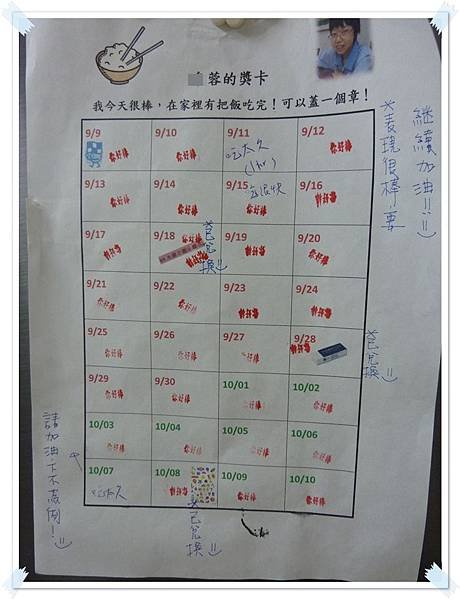 蓉的獎卡
我今天很棒，在家裡有把飯吃完！可以蓋一個章！
9/9 9/10 9/11 9/12
你好棒 你好棒 吃太久 你好棒
(1hr)
9/13 9/14 9/15 9/16
你好棒 你好棒 你好棒
9/17 9/18 9/19 9/20
你好棒 你好棒 你好棒 你好棒
你好棒
*已兌換
9/21 9/22 9/23 9/24
你好棒 你好棒 你好棒 你好棒
9/25 9/26 9/27 9/28
你好棒 你好棒 你好棒 你好棒
*已兌換
9/29 9/30 10/01 10/02
你好棒 你好棒 你好棒 你好棒
10/03 10/04 10/05 10/06
你好棒 你好棒 你好棒 你好棒
10/07 10/08 10/09 10/10
吃太久 你好棒 你好棒 你好棒
*已兌換
*表現很棒!要
繼續加油!!
請加油